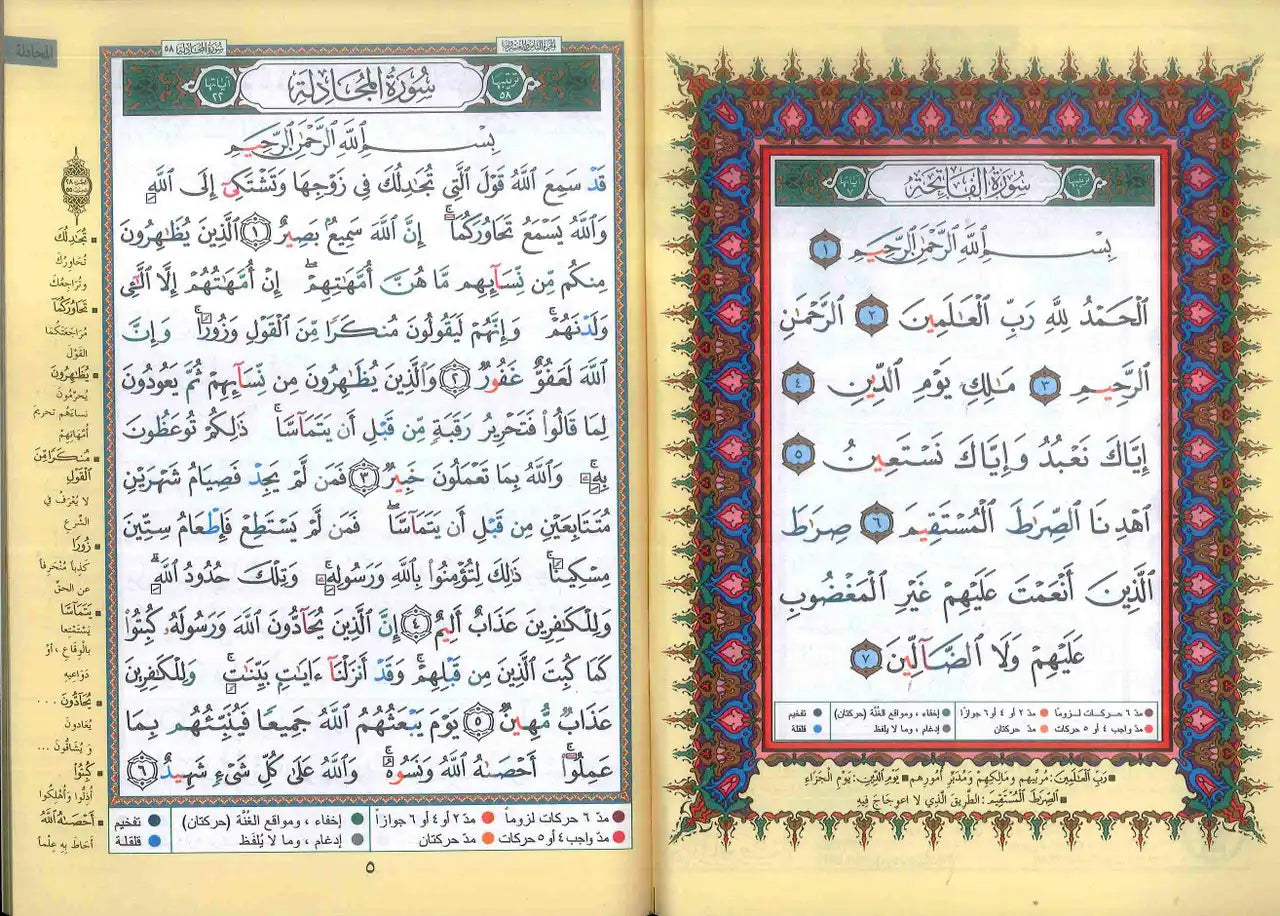 سُورَةُ الفَاتِحَةِ
ترتيبها ١
آياتها ٧
بِسْمِ ٱللَّهِ ٱلرَّحْمَٰنِ ٱلرَّحِيمِ ١
ٱلْحَمْدُ لِلَّهِ رَبِّ ٱلْعَٰلَمِينَ ٢ ٱلرَّحْمَٰنِ
ٱلرَّحِيمِ ٣ مَٰلِكِ يَوْمِ ٱلدِّينِ ٤
إِيَّاكَ نَعْبُدُ وَإِيَّاكَ نَسْتَعِينُ ٥
ٱهْدِنَا ٱلصِّرَٰطَ ٱلْمُسْتَقِيمَ ٦ صِرَٰطَ
ٱلَّذِينَ أَنْعَمْتَ عَلَيْهِمْ غَيْرِ ٱلْمَغْضُوبِ
عَلَيْهِمْ وَلَا ٱلضَّآلِّينَ ٧
مدّ ٦ حركات لزوماً مدّ ٢ أو ٤ أو ٦ جوازاً إخفاء ، ومواقع الغُنَّة (حركتان) تفخيم
مدّ واجب ٤ أو ٥ حركات مدّ حركتان إدغام ، وما لا يلفظ قلقلة
رَبِّ الْعَالَمِينَ: مُرَبِّيهِم وَمَالِكِهِمْ وَمُدَبِّرِ أُمُورِهِم يَوْمِ الدِّينِ: يَوْمِ الْجَزَاءِ
الصِّرَاطَ الْمُسْتَقِيمَ: الطَّرِيقَ الَّذِي لا اعوِجَاجَ فِيهِ
المجادلة
الجزء الثامن والعشرون
سورة المجادلة ٥٨
سُورَةُ المُجَادِلَةِ
ترتيبها ٥٨
آياتها ٢٢
بِسْمِ ٱللَّهِ ٱلرَّحْمَٰنِ ٱلرَّحِيمِ
قَدْ سَمِعَ ٱللَّهُ قَوْلَ ٱلَّتِى تُجَٰدِلُكَ فِى زَوْجِهَا وَتَشْتَكِىٓ إِلَى ٱللَّهِ
وَٱللَّهُ يَسْمَعُ تَحَاوُرَكُمَآ إِنَّ ٱللَّهَ سَمِيعٌۢ بَصِيرٌ ١ ٱلَّذِينَ يُظَٰهِرُونَ
مِنكُم مِّن نِّسَآئِهِم مَّا هُنَّ أُمَّهَٰتِهِمْ ۖ إِنْ أُمَّهَٰتُهُمْ إِلَّا ٱلَّٰٓـِٔى
وَلَدْنَهُمْ ۚ وَإِنَّهُمْ لَيَقُولُونَ مُنكَرًا مِّنَ ٱلْقَوْلِ وَزُورًا ۚ وَإِنَّ
ٱللَّهَ لَعَفُوٌّ غَفُورٌ ٢ وَٱلَّذِينَ يُظَٰهِرُونَ مِن نِّسَآئِهِمْ ثُمَّ يَعُودُونَ
لِمَا قَالُوا۟ فَتَحْرِيرُ رَقَبَةٍ مِّن قَبْلِ أَن يَتَمَآسَّا ۚ ذَٰلِكُمْ تُوعَظُونَ
بِهِۦ ۚ وَٱللَّهُ بِمَا تَعْمَلُونَ خَبِيرٌ ٣ فَمَن لَّمْ يَجِدْ فَصِيَامُ شَهْرَيْنِ
مُتَتَابِعَيْنِ مِن قَبْلِ أَن يَتَمَآسَّا ۖ فَمَن لَّمْ يَسْتَطِعْ فَإِطْعَامُ سِتِّينَ
مِسْكِينًا ۚ ذَٰلِكَ لِتُؤْمِنُوا۟ بِٱللَّهِ وَرَسُولِهِۦ ۚ وَتِلْكَ حُدُودُ ٱللَّهِ ۗ
وَلِلْكَٰفِرِينَ عَذَابٌ أَلِيمٌ ٤ إِنَّ ٱلَّذِينَ يُحَآدُّونَ ٱللَّهَ وَرَسُولَهُۥ كُبِتُوا۟
كَمَا كُبِتَ ٱلَّذِينَ مِن قَبْلِهِمْ ۚ وَقَدْ أَنزَلْنَآ ءَايَٰتٍۭ بَيِّنَٰتٍ ۚ وَلِلْكَٰفِرِينَ
عَذَابٌ مُّهِينٌ ٥ يَوْمَ يَبْعَثُهُمُ ٱللَّهُ جَمِيعًا فَيُنَبِّئُهُم بِمَا
عَمِلُوٓا۟ ۚ أَحْصَىٰهُ ٱللَّهُ وَنَسُوهُ ۚ وَٱللَّهُ عَلَىٰ كُلِّ شَىْءٍ شَهِيدٌ ٦
تُجَٰدِلُكَ
تُحَاوِرُكَ
وتُرَاجِعُكَ
تَحَاوُرَكُمَا
مُرَاجَعَتَكُمَا
القَوْلَ
يُظَٰهِرُونَ
يُحَرِّمُونَ
نساءَهُم تحريمَ
أُمَّهَاتِهِمْ
مُنكَرًا مِّنَ
ٱلْقَوْلِ
لا يُعْرَفُ في
الشَّرعِ
زُورًا
كَذِباً مُنْحَرِفاً
عن الحقِّ
يَتَمَآسَّا
يَسْتَمْتِعا
بالوِقَاعِ ، أوْ
دَوَاعِيهِ
يُحَآدُّونَ ...
يُعَادونَ
وَيُشَاقُّونَ ...
كُبِتُوا۟
أُذِلُّوا وَأُهْلِكُوا
أَحْصَىٰهُ ٱللَّهُ
أحَاطَ بِهِ عِلْماً
مدّ ٦ حركات لزوماً مدّ ٢ أو ٤ أو ٦ جوازاً إخفاء ، ومواقع الغُنَّة (حركتان) تفخيم
مدّ واجب ٤ أو ٥ حركات مدّ حركتان إدغام ، وما لا يُلفَظ قلقلة
٥